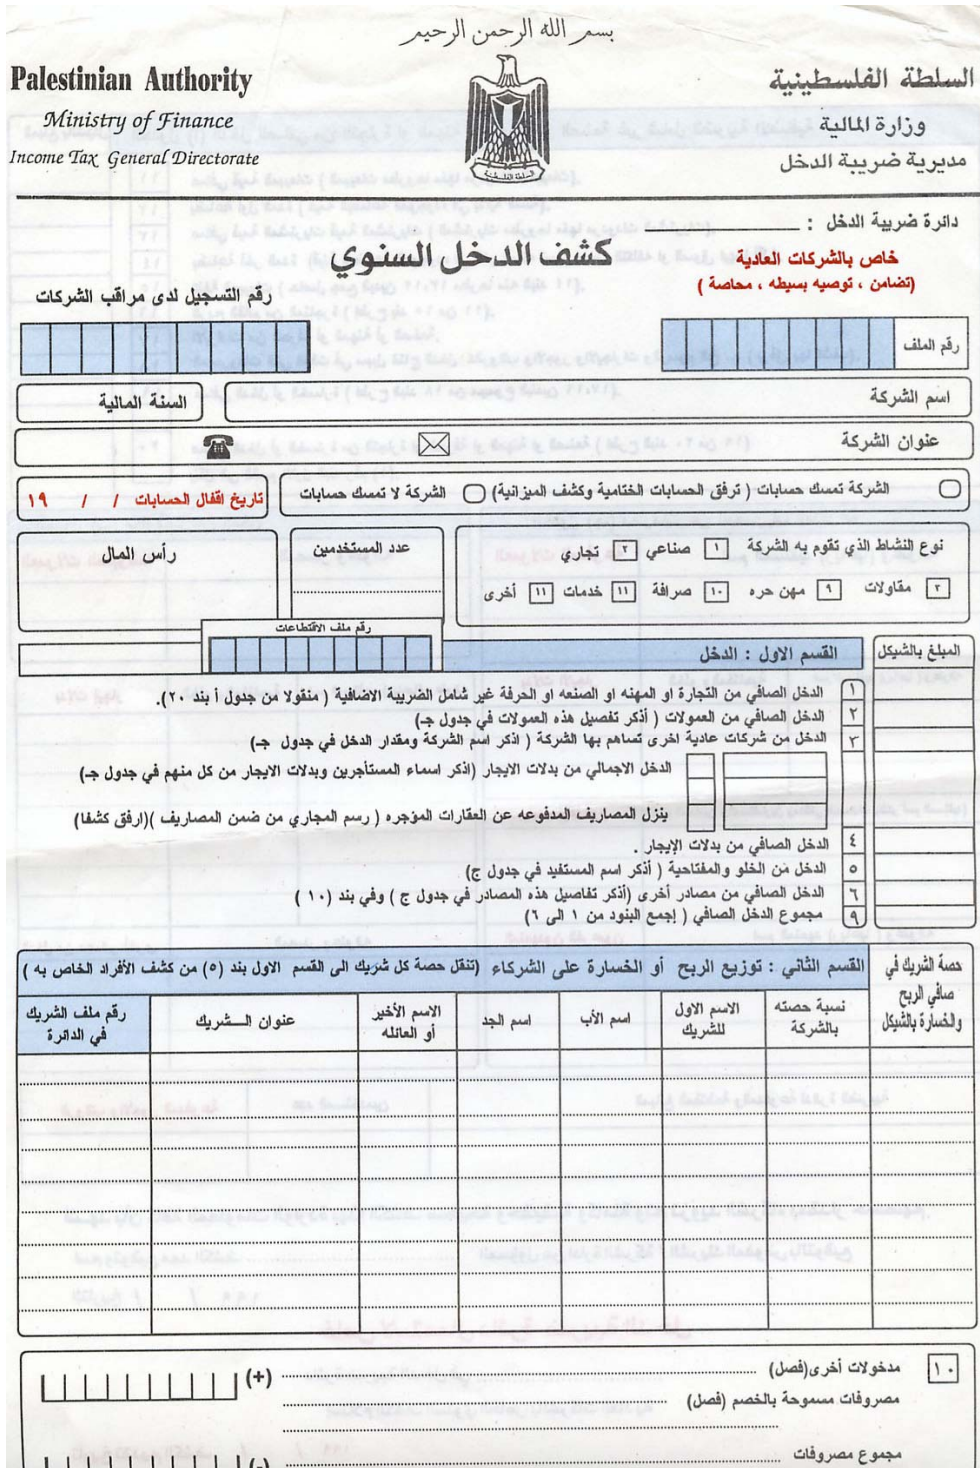 بسم الله الرحمن الرحيم
Palestinian Authority
السلطة الفلسطينية
Ministry of Finance
وزارة المالية
Income Tax General Directorate
مديرية ضريبة الدخل
دائرة ضريبة الدخل :
كشف الدخل السنوي
خاص بالشركات العادية
(تضامن ، توصيه بسيطه ، محاصة )
رقم التسجيل لدى مراقب الشركات
رقم الملف
اسم الشركة
السنة المالية
عنوان الشركة
الشركة تمسك حسابات ( ترفق الحسابات الختامية وكشف الميزانية)
الشركة لا تمسك حسابات
تاريخ اقفال الحسابات / / ١٩
نوع النشاط الذي تقوم به الشركة ١ صناعي ٢ تجاري
٣ مقاولات ٩ مهن حره ١٠ صرافة ١١ خدمات ١١ أخرى
عدد المستخدمين
رأس المال
رقم ملف الاقتطاعات
المبلغ بالشيكل
القسم الاول : الدخل
١ الدخل الصافي من التجارة او المهنه او الصنعه او الحرفة غير شامل الضريبة الاضافية ( منقولا من جدول أ بند ٢٠).
٢ الدخل الصافي من العمولات ( أذكر تفصيل هذه العمولات في جدول جـ)
٣ الدخل من شركات عادية اخرى تساهم بها الشركة ( اذكر اسم الشركة ومقدار الدخل في جدول جـ)
الدخل الاجمالي من بدلات الايجار (اذكر اسماء المستأجرين وبدلات الايجار من كل منهم في جدول جـ)
ينزل المصاريف المدفوعه عن العقارات المؤجره ( رسم المجاري من ضمن المصاريف )(ارفق كشفا)
٤ الدخل الصافي من بدلات الإيجار .
٥ الدخل من الخلو والمفتاحية ( أذكر اسم المستفيد في جدول ج)
٦ الدخل الصافي من مصادر أخرى (أذكر تفاصيل هذه المصادر في جدول ج ) وفي بند (١٠ )
٩ مجموع الدخل الصافي ( إجمع البنود من ١ الى ٦)
القسم الثاني : توزيع الربح أو الخسارة على الشركاء (تنقل حصة كل شريك الى القسم الاول بند (٥) من كشف الأفراد الخاص به )
حصة الشريك في صافي الربح والخسارة بالشيكل
نسبة حصته بالشركة
الاسم الاول للشريك
اسم الأب
اسم الجد
الاسم الأخير أو العائله
عنوان الـــشريك
رقم ملف الشريك في الدائرة
١٠ مدخولات أخرى(فصل) (+)
مصروفات مسموحة بالخصم (فصل)
مجموع مصروفات (-)